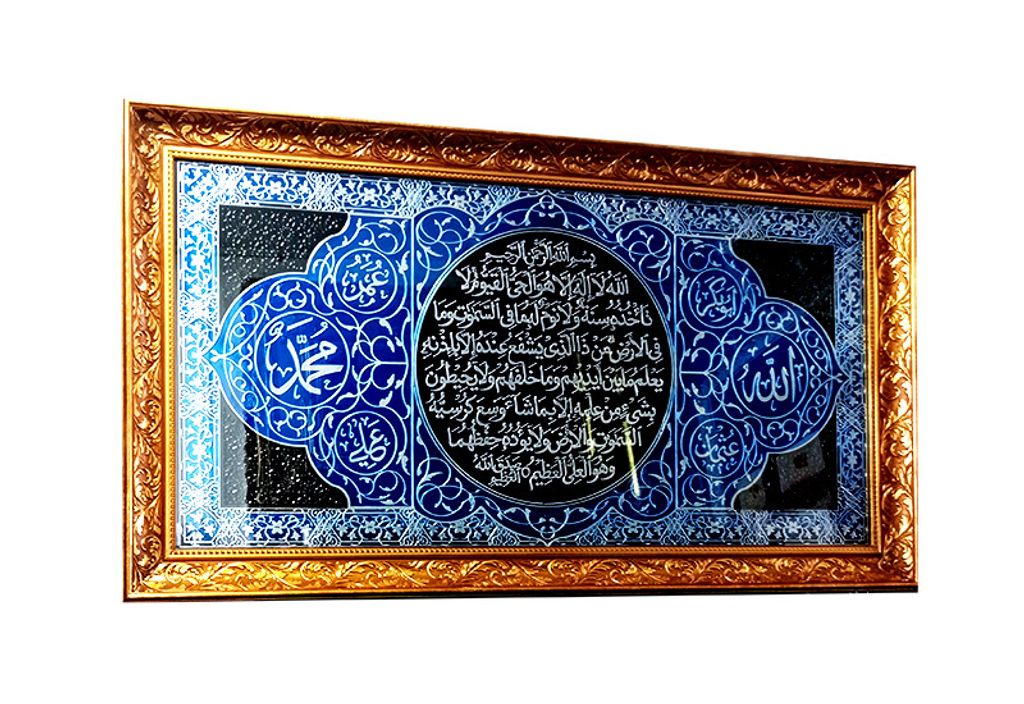 الله
ابوبكر
عثمان
بسم الله الرحمن الرحيم
الله لا اله الا هو الحي القيوم لا
تأخذه سنة ولا نوم له ما في السموت وما
في الارض من ذا الذي يشفع عنده الا باذنه
يعلم ما بين ايديهم وما خلفهم ولا يحيطون
بشيء من علمه الا بما شاء وسع كرسيه
السموت والارض ولا يؤده حفظهما
وهو العلي العظيم صدق الله العظيم
عمر
محمد
علي